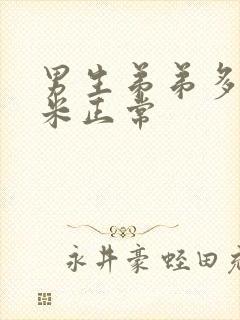 男生弟弟多
米正常
永井豪 蛭田充